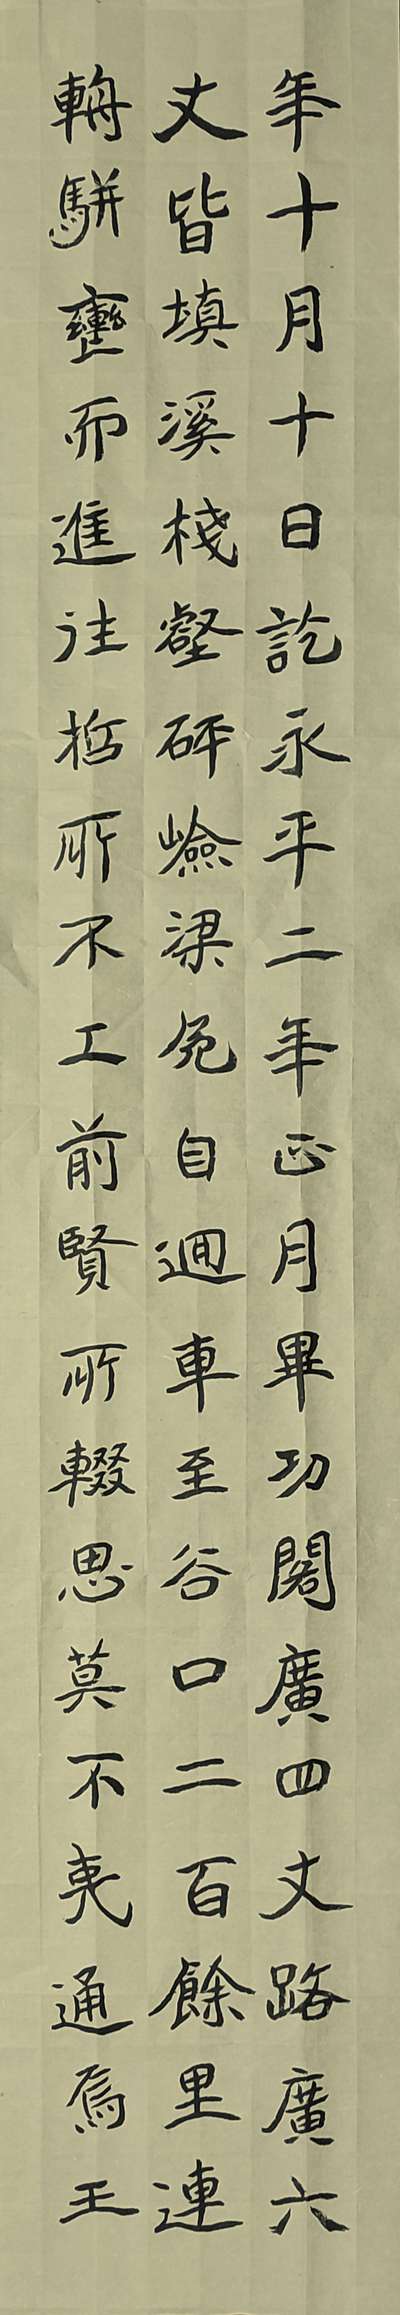 年十月十日訖永平二年正月畢功閣廣四丈路廣六
丈皆填溪棧壑砰嶮梁危自迴車至谷口二百餘里連
輈駢轡而進往哲所不工前賢所輟思莫不夷通焉王